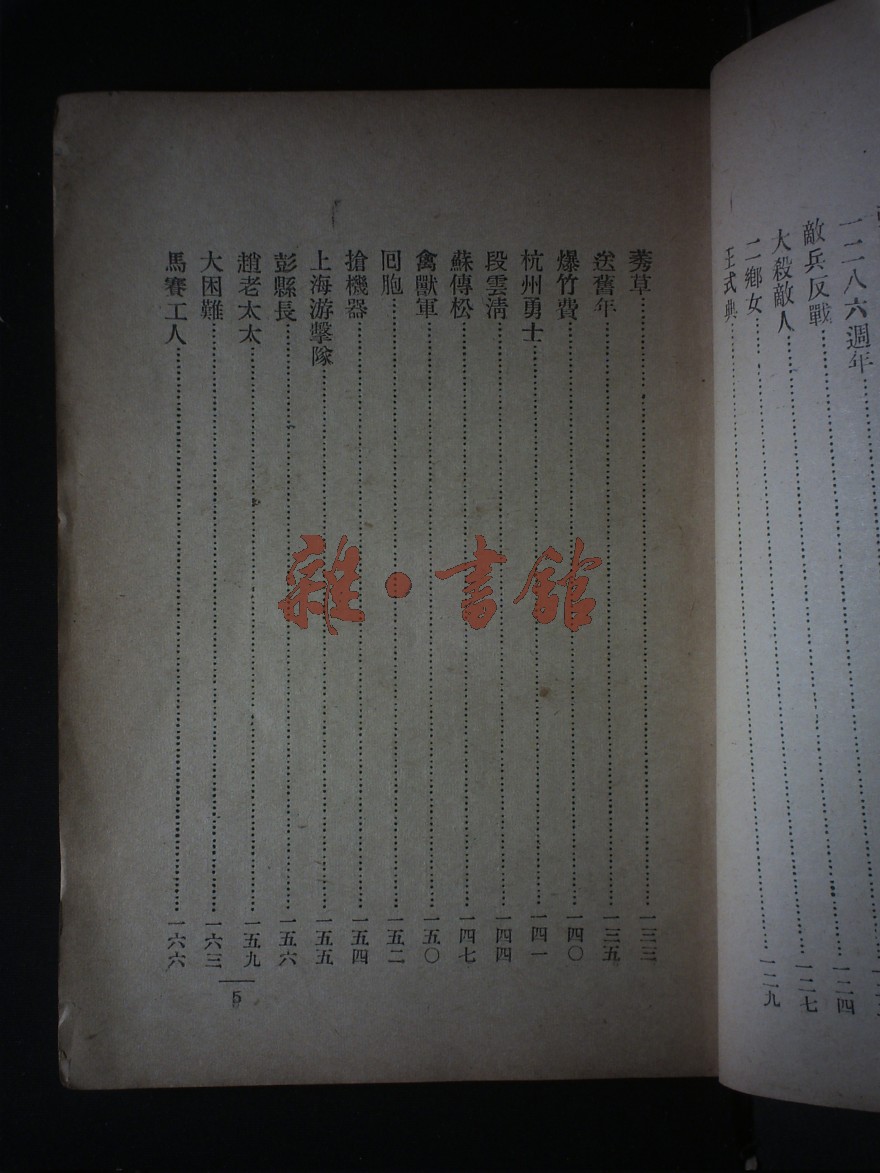 一二八六週年
敵兵反戰……一二四
大殺敵人……一二七
二鄉女……一二九
王式典……
莠草……一三三
送舊年……一三五
爆竹費……一四〇
杭州勇士……一四一
段雲淸……一四四
蘇傳松……一四七
禽獸軍……一五〇
囘胞……一五二
搶機器……一五四
上海游擊隊……一五五
彭縣長……一五六
趙老太太……一五九
大困難……一六三
馬賽工人……一六六
5
雜·書館